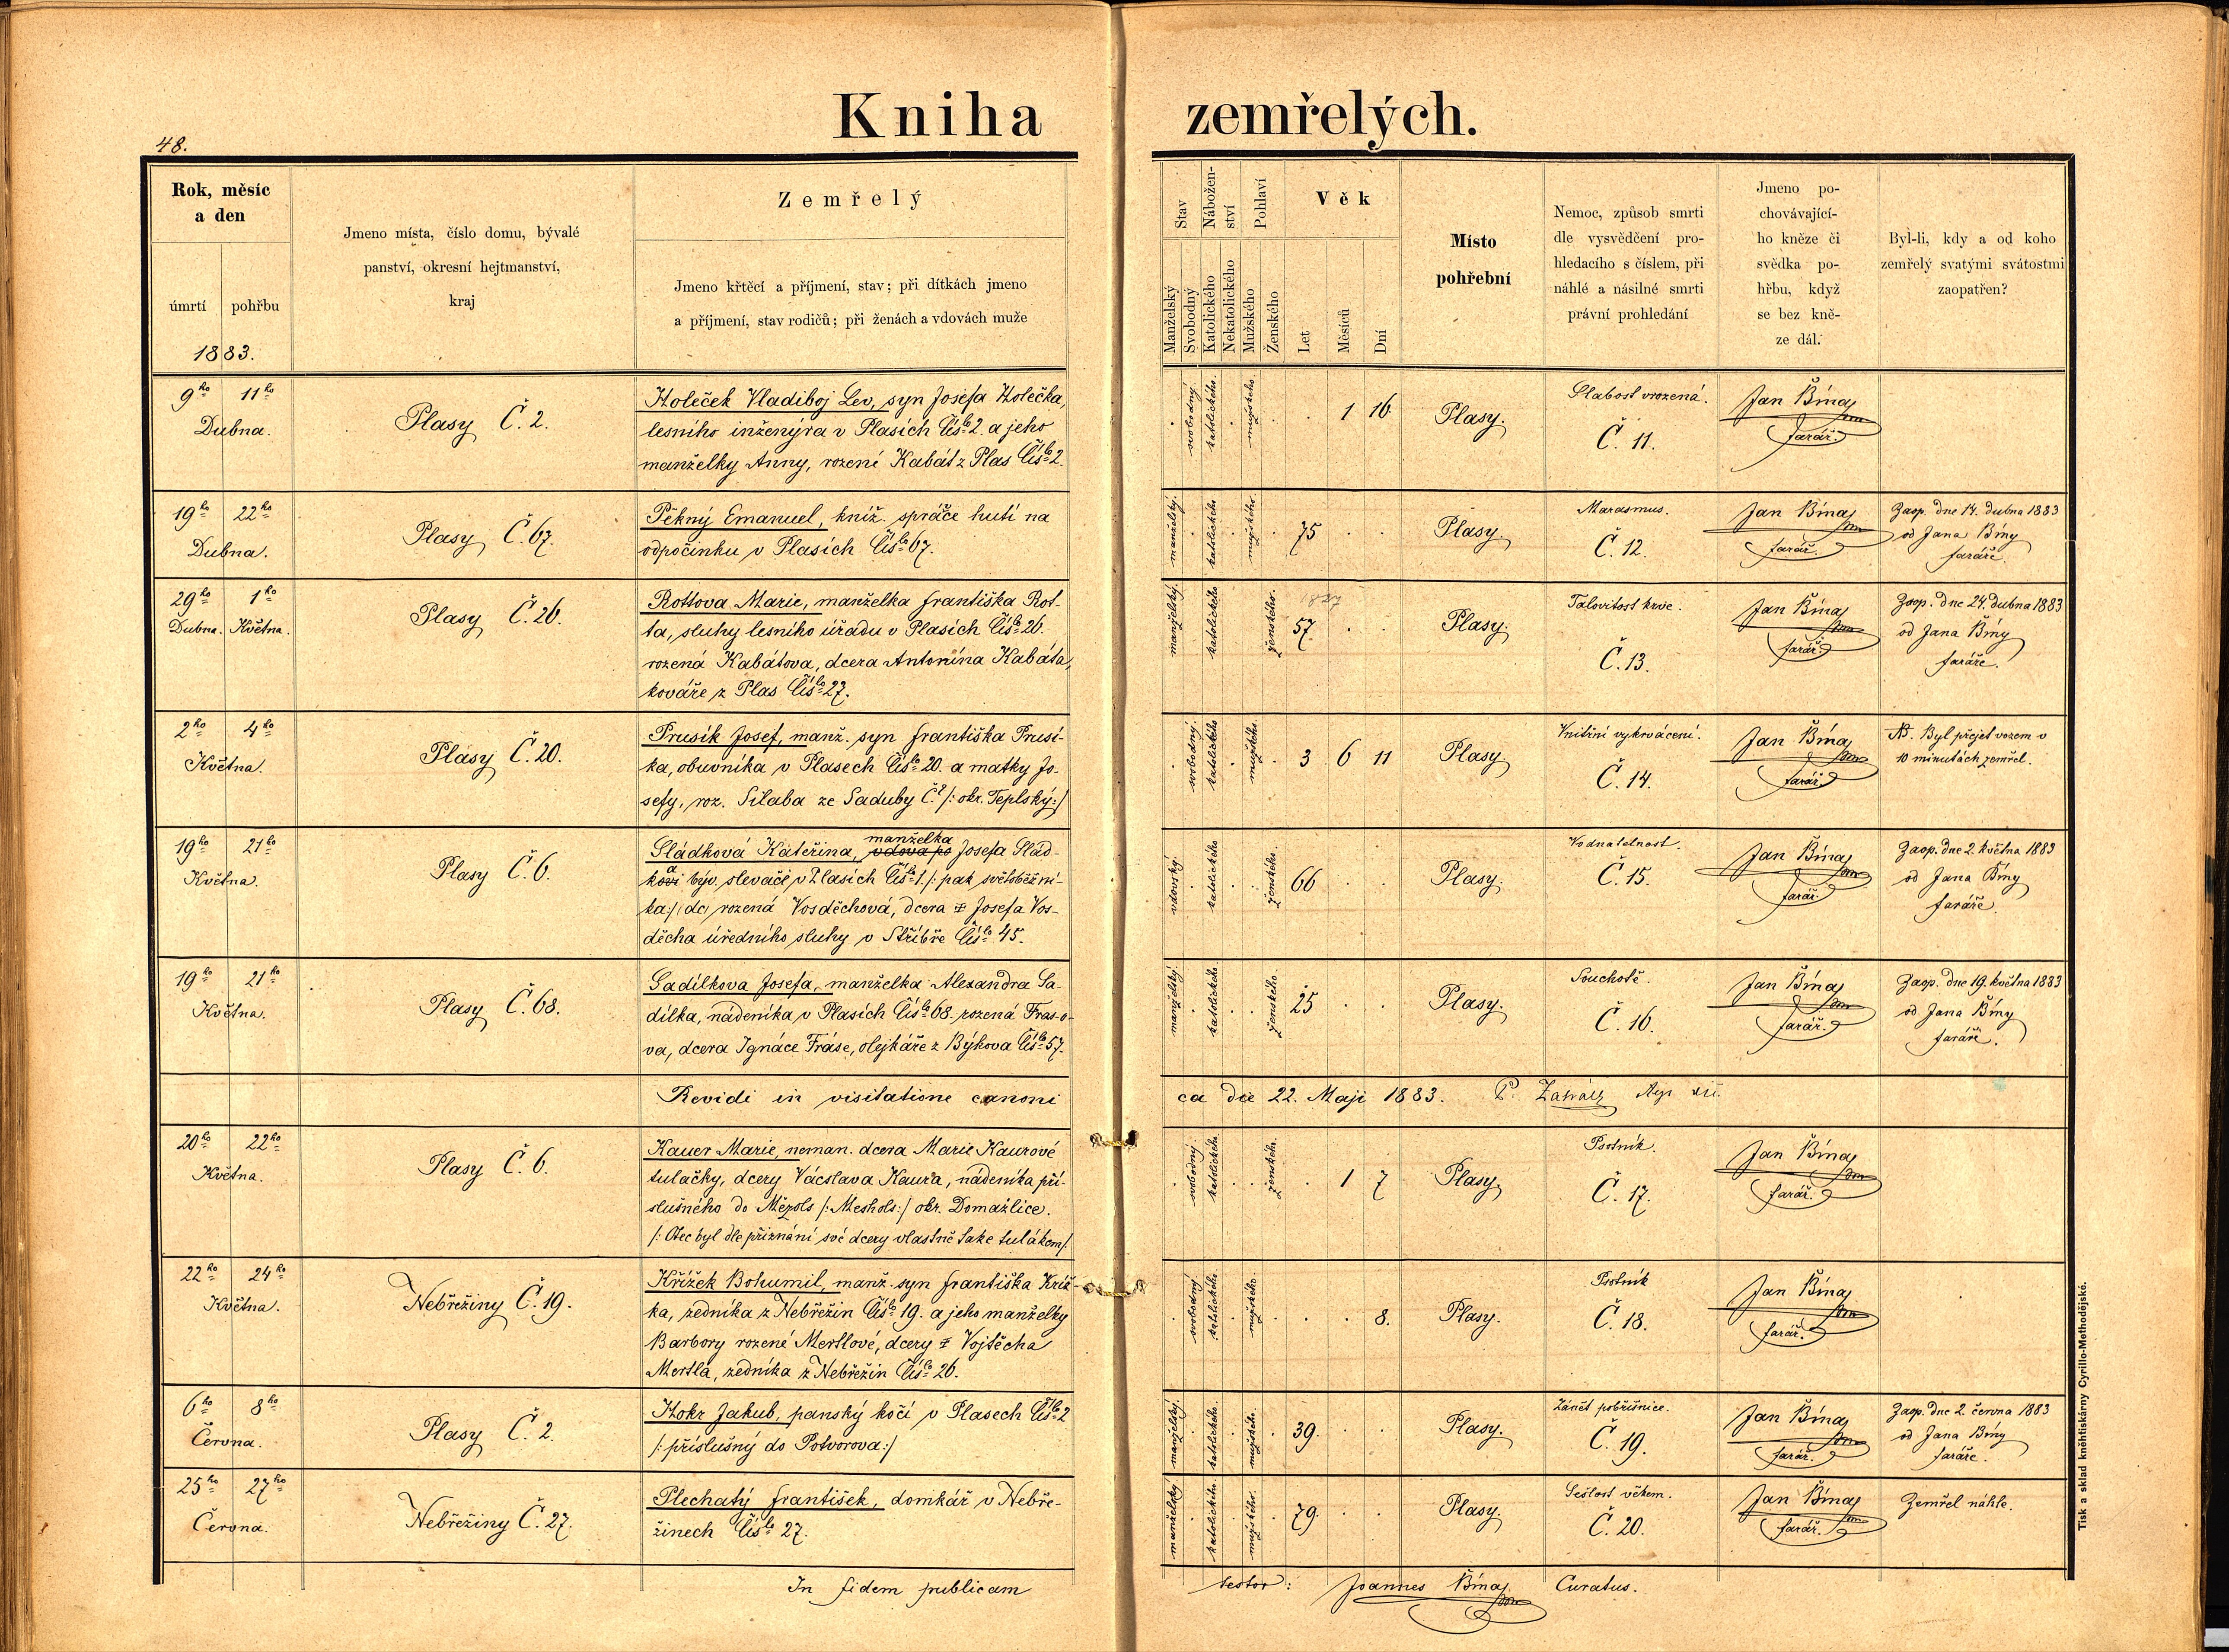 Kniha zemřelých.
48.
Rok, měsíc
a den
úmrtí pohřbu
1883.
Jmeno místa, číslo domu, bývalé
panství, okresní hejtmanství,
kraj
Zemřelý
Jmeno křtěcí a příjmení, stav; při dítkách jmeno
a příjmení, stav rodičů; při ženách a vdovách muže
Stav
Manželský
Svobodný
Nábožen-
ství
Katolického
Nekatolického
Pohlaví
Mužského
Ženského
Věk
Let
Měsíců
Dní
Místo
pohřební
Nemoc, způsob smrti
dle vysvědčení pro-
hledacího s číslem, při
náhlé a násilné smrti
právní prohledání
Jmeno po-
chovávající-
ho kněze či
svědka po-
hřbu, když
se bez kně-
ze dál.
Byl-li, kdy a od koho
zemřelý svatými svátostmi
zaopatřen?
9ho 11ho
Dubna.
Plasy Č. 2.
Holeček Vladiboj Lev, syn Josefa Holečka,
lesního inženýra v Plasích Čislo 2. a jeho
manželky Anny, rozené Kabát z Plas Čislo 2.
svobodný. katolického. mužského
1 16
Plasy.
Slabost vrozená.
Č. 11.
Jan Bína
farář.
19ho 22ho
Dubna.
Plasy Č. 67.
Pěkný Emanuel, kníž. správce hutí na
odpočinku v Plasích Číslo 67.
manželský. katolického mužského.
75
Plasy.
Marasmus.
Č. 12.
Jan Bína
farář.
Zaop. dne 14. dubna 1883
od Jana Bíny
faráře.
29ho 1ho
Dubna. Května.
Plasy Č. 26.
Rottova Marie, manželka Františka Rot-
ta, sluhy lesního úřadu v Plasích Číslo 26.
rozená Kabátova, dcera Antonína Kabáta,
kováře z Plas Číslo 27.
manželský. katolického ženského.
1827
57
Plasy.
Talovitost krve.
Č. 13.
Jan Bína
farář.
Zaop. dne 24. dubna 1883
od Jana Bíny
faráře.
2ho 4ho
Května.
Plasy Č. 20.
Prusík Josef, manž. syn Františka Prusí-
ka, obuvníka v Plasech Číslo 20. a matky Jo-
sefy, roz. Silaba ze Saduby Č.? /: okr. Teplský:/
svobodný. katolického mužského.
3 6 11
Plasy.
Vnitřní vykrvácení.
Č. 14.
Jan Bína
farář.
NB. Byl přejet vozem v
10 minutách zemřel.
19ho 21ho
Května.
Plasy Č. 6.
manželka
Sládková Kateřina, vdova po Josefa Slád-
ka býv. slevače v Plasích Číslo 1. /: pak světoběžní-
ka:/ rozená Vosděchová, dcera Josefa Vos-
děcha úředního sluhy v Stříbře Číslo 45.
vdovský. katolického ženského.
66
Plasy.
Vodnatelnost.
Č. 15.
Jan Bína
farář.
Zaop. dne 2. května 1883
od Jana Bíny
faráře.
19ho 21ho
Května.
Plasy Č. 68.
Sadílkova Josefa, manželka Alexandra Sa-
dílka, nádeníka v Plasích Číslo 68, rozená Fras-o-
va, dcera Ignáce Fráse, olejkáře z Býkova Číslo 57.
manželský. katolického ženského.
25
Plasy.
Souchotě.
Č. 16.
Jan Bína
farář.
Zaop. dne 19. května 1883
od Jana Bíny
faráře.
Revidi in visitatione canoni
ca die 22. Maji 1883.
20ho 22ho
Května.
Plasy Č. 6.
Kauer Marie, neman. dcera Marie Kaurové
tulačky, dcery Vácslava Kaura, nádeníka pří-
slušného do Mezols /: Meshols:/ okr. Domažlice.
/: Otec byl dle přiznání své dcery vlastně také tulákem:/
svobodný. katolického ženského.
1 7
Plasy.
Psotník.
Č. 17.
Jan Bína
farář.
22ho 24ho
Května.
Nebřežiny Č. 19.
Křížek Bohumil, manž. syn Františka Kříž-
ka, zedníka z Nebřežin Číslo 19. a jeho manželky
Barbory rozené Mertlové, dcery Vojtěcha
Mertla, zedníka z Nebřežin Číslo 26.
svobodný katolického mužského.
8.
Plasy.
Psotník
Č. 18.
Jan Bína
farář.
6ho 8ho
Června.
Plasy Č. 2.
Hokr Jakub, panský kočí v Plasech Číslo 2
/: příslušný do Potvorova:/
manželský. katolického. mužského.
39.
Plasy.
Zánět pobřišnice.
Č. 19.
Jan Bína
farář.
Zaop. dne 2. června 1883
od Jana Bíny
faráře.
25ho 27ho
Června.
Nebřežiny Č. 27.
Plechatý František, domkář v Nebře-
žinech Číslo 27.
manželský katolického. mužského.
79.
Plasy.
Sešlost věkem.
Č. 20.
Jan Bína
farář.
Zemřel náhle.
In fidem publicam
testor: Joannes Bína Curatus.
Tisk a sklad kněhtiskárny Cyrillo-Methodějské.